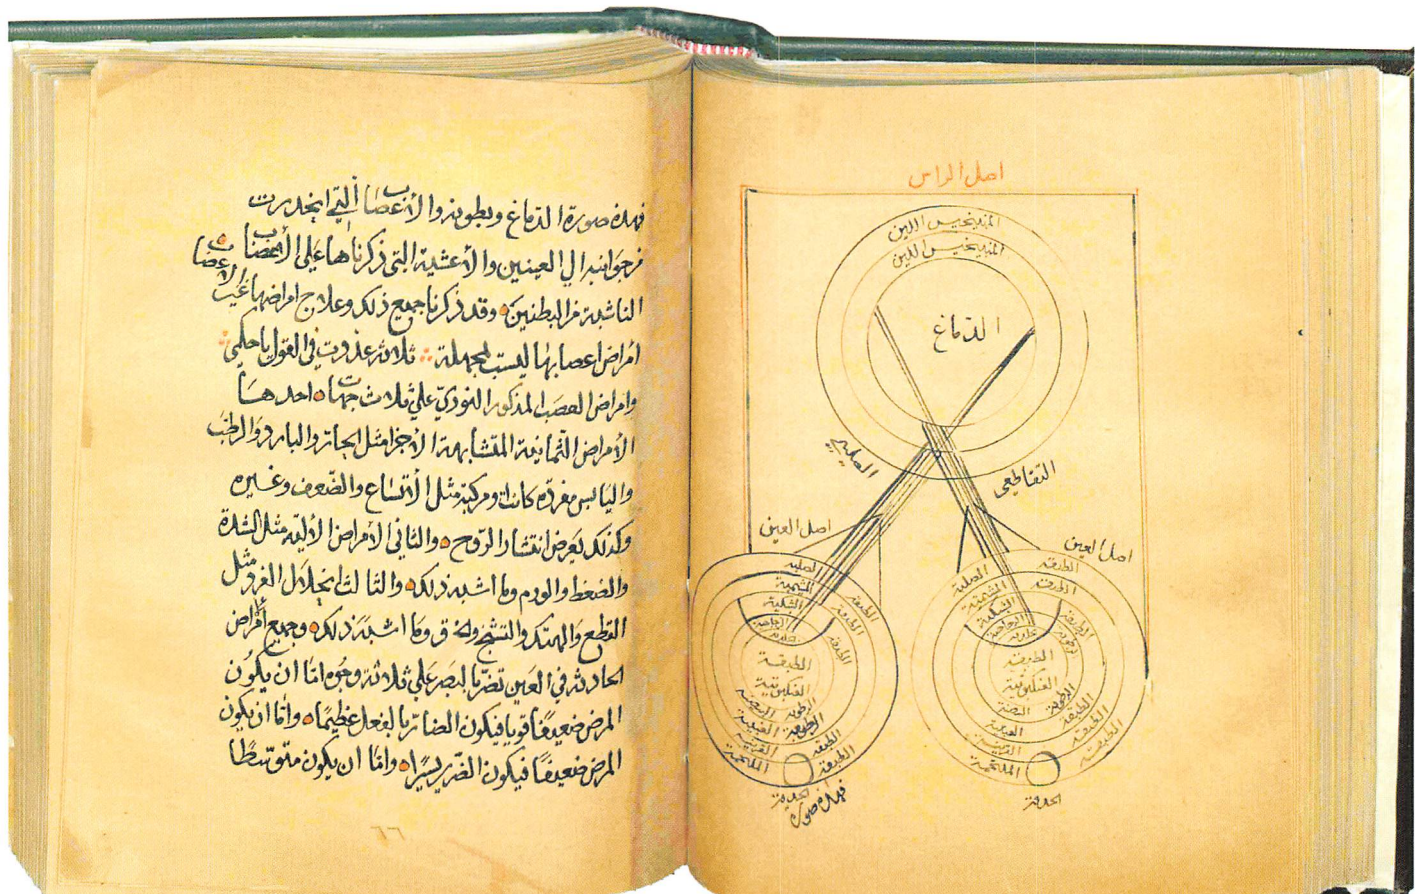 اصل الراس
المنيخس اللين
المنيخس اللين
الدماغ
الصليبي
التقاطعي
اصل العين
اصل العين
الطبقة
الصلبة
المشيمية
الشبكية
الزجاجية
الطبقة
الطبقة
الطبقة
العنكبوتية
الرطوبة
البيضية
الطبقة
العنبية
الطبقة
القرنية
الطبقة
الملتحمة
الحدقة
الصلبة
المشيمية
الشبكية
الطبقة
الطبقة
الطبقة
الطبقة
العنكبوتية
البيضية
الرطوبة
العنبية
الطبقة
القرنية
الطبقة
الملتحمة
الطبقة
الحدقة
فهذه صورة
فهذه صورة الدماغ وبطونه والأعصاب التي انحدرت
من جوانبه الي العينين والأغشية التي ذكرناها علي الأعصاب
الناشية من البطنين وقد ذكرنا جميع ذلك وعلاج امراضها
امراض اعصابها ليست بمجملة ثلاثة في القول
وامراض العصب المذكور النوري علي ثلاث جهات احدها
الأمراض الثمانية المتشابهة الأجزا مثل الحار والبارد والرطب
واليابس مفردة كانت او مركبة مثل الأتساع والضعف وغيره
وكذلك يعرض انتشار الروح والثاني الأمراض الألية مثل الشدة
والضغط والورم وما اشبه ذلك والثالث انحلال الفرد مثل
القطع والهتك والتشنج وما اشبه ذلك وجميع أمراض
الحادثة في العين تضر بالبصر علي ثلاثة وجوه امّا ان يكون
المرض ضعيفًا قويا فيكون الضار بالفعل عظيمًا وأمّا ان يكون
المرض ضعيفًا فيكون الضرر يسيرًا وامّا ان يكون متوسّطًا
٦٦